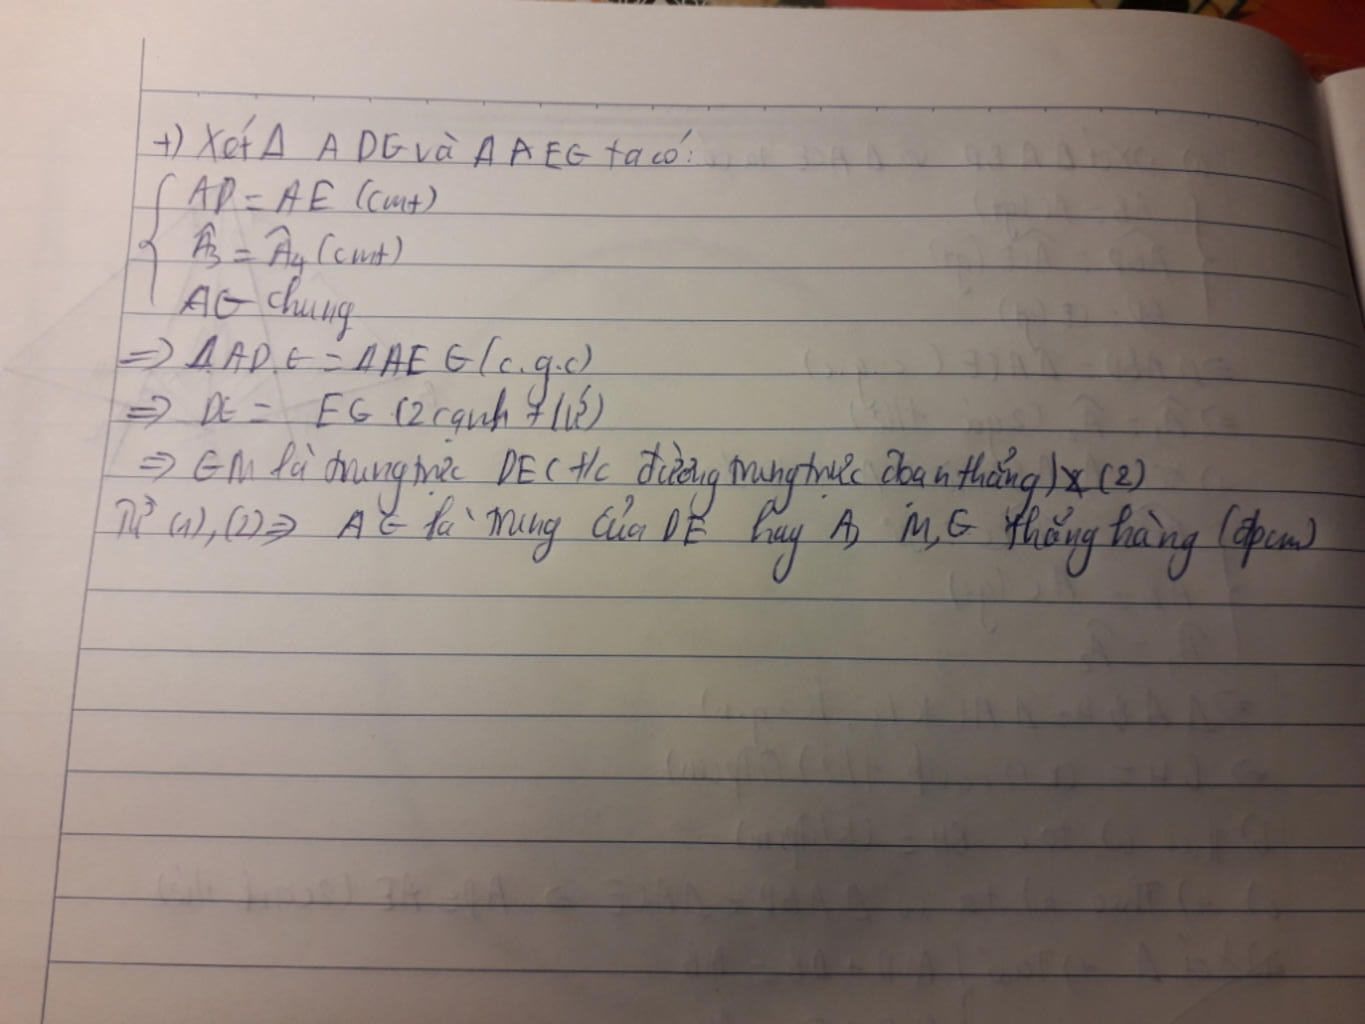 +) Xét Δ ADG và Δ AEG ta có:
AD = AE (cmt)
Â3 = Â4 (cmt)
AG chung
=> ΔADG = ΔAEG (c.g.c)
=> DG = EG (2 cạnh t/ứ)
=> GM là trung trực DE (t/c đường trung trực đoạn thẳng) (2)
Từ (1), (2) => AG là trung của DE hay A, M, G thẳng hàng (đpcm)